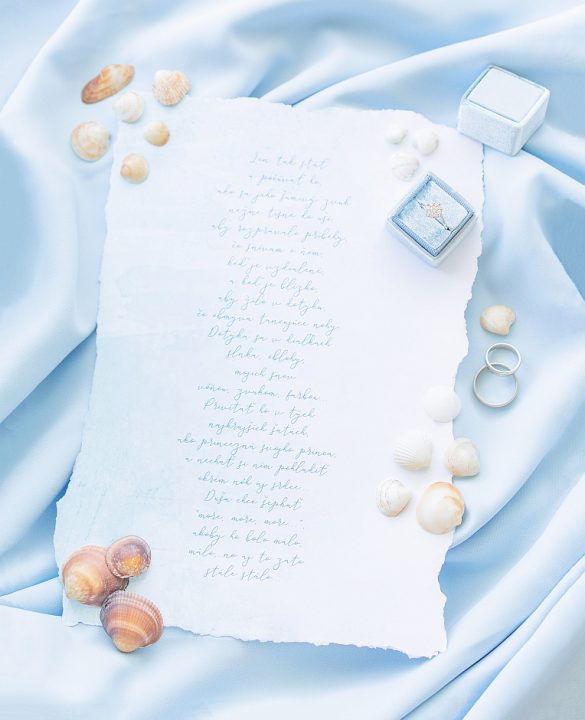 Len tak stáť
a počúvať ho,
ako sa jeho šumivý zvuk
nežne tisne do uší,
aby rozprávalo príbehy,
čo snívam o ňom,
keď je vzdialené,
a keď je blízko,
aby žilo v dotyku,
čo obmýva tancujúce nohy.
Dotýka sa v diaľkach
slnka, oblohy,
mojich snov
vôňou, zvukom, farbou.
Privítať ho v tých
najkrajších šatách,
ako princezná svojho princa
a nechať si ním pohladiť
okrem nôh aj srdce.
Duša chce šepkať
"more, more, more..."
akoby ho bolo málo
málo, no aj to zato
stále stálo.